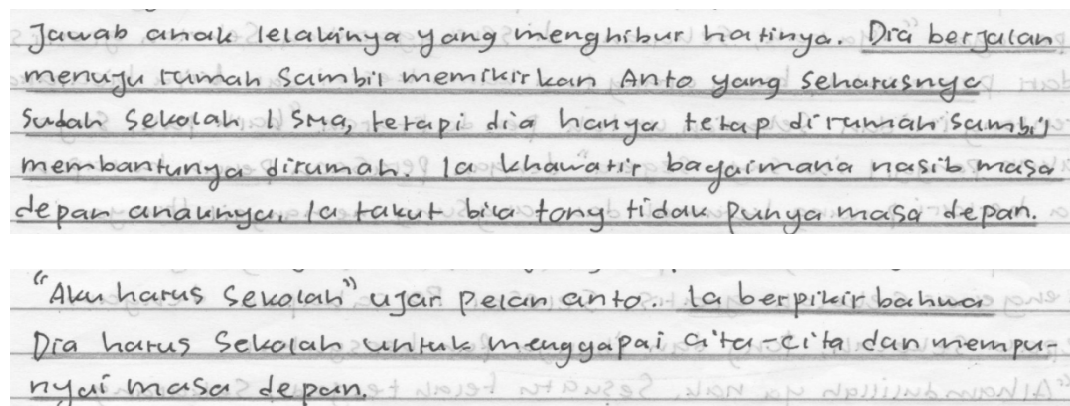 Jawab anak lelakinya yang menghibur hatinya. Dia berjalan
menuju rumah sambil memikirkan Anto yang seharusnya
sudah sekolah 1 SMA, tetapi dia hanya tetap dirumah sambil
membantunya dirumah. Ia khawatir bagaimana nasib masa
depan anaknya. Ia takut bila tong tidak punya masa depan.
"Aku harus sekolah" ujar pelan anto.. Ia berpikir bahwa
Dia harus sekolah untuk menggapai cita-cita dan mempu-
nyai masa depan.